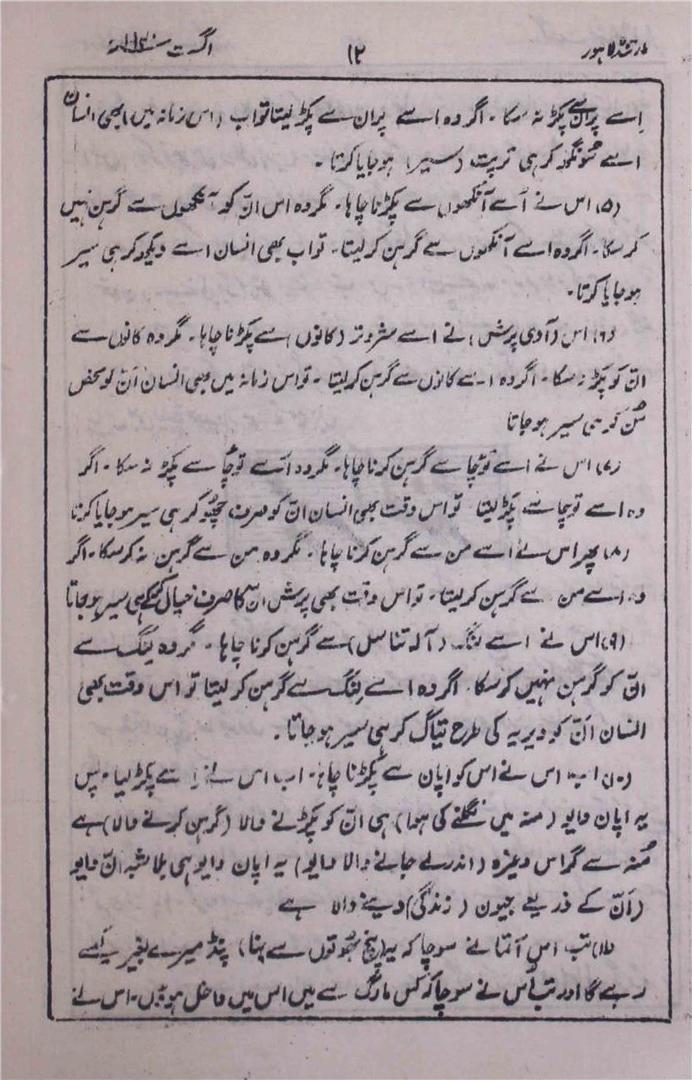 مارتنڈ لاہور ۱۲ اگست
اسے پران سے پکڑ نہ سکا۔ اگر وہ اسے پران سے پکڑ لیتا تو اب (اس زمانہ میں) بھی انسان
اسے سونگھ کر ہی ترپت (سیر) ہو جایا کرتا۔
(۵) اس نے اُسے آنکھوں سے پکڑنا چاہا۔ مگر وہ اس انّ کو آنکھوں سے گرہن نہیں
کر سکا۔ اگر وہ اسے آنکھوں سے گرہن کر لیتا۔ تو اب بھی انسان اسے دیکھ کر ہی سیر
ہو جایا کرتا۔
(۶) اس (آدی پرش) نے اسے شروتر (کانوں) سے پکڑنا چاہا۔ مگر وہ کانوں سے
انّ کو پکڑ نہ سکا۔ اگر وہ اسے کانوں سے گرہن کر لیتا۔ تو اس زمانہ میں بھی انسان انّ کو محض
سُن کر ہی سیر ہو جاتا
(۷) اس نے اسے توچا سے گرہن کرنا چاہا۔ مگر وہ اسے توچا سے پکڑ نہ سکا۔ اگر
وہ اسے توچا سے پکڑ لیتا تو اس وقت بھی انسان انّ کو صرف چھُو کر ہی سیر ہو جایا کرتا
(۸) پھر اس نے اسے من سے گرہن کرنا چاہا۔ مگر وہ من سے گرہن نہ کر سکا۔ اگر
وہ اسے من سے گرہن کر لیتا۔ تو اس وقت بھی پرش انّ کا صرف خیال کر کے ہی سیر ہو جاتا
(۹) اس نے اسے لنگ (آلہ تناسل) سے گرہن کرنا چاہا۔ مگر وہ لنگ سے
انّ کو گرہن نہیں کر سکا۔ اگر وہ اسے لنگ سے گرہن کر لیتا تو اس وقت بھی
انسان انّ کو ویریہ کی طرح تیاگ کر ہی سیر ہو جاتا۔
(۱۰) اب اس نے اس کو اپان سے پکڑنا چاہا۔ اب اس نے اسے پکڑ لیا۔ پس
یہ اپان وایو (منہ میں نگلنے کی ہوا) ہی انّ کو پکڑنے والا (گرہن کرنے والا) ہے
مُنہ سے گراس وغیرہ (اندر لے جانے والا وایو) یہ اپان وایو ہی بلا شبہ انّ وایو
(انّ کے ذریعے جیون (زندگی) دینے والا ہے
(۱۱) تب اس آتما نے سوچا کہ یہ (پنچ بھوتوں سے بنا) پنڈ میرے بغیر کیسے
رہے گا اور تب اُس نے سوچا کہ کس مارگ سے میں اس میں داخل ہوؤں۔ اس نے